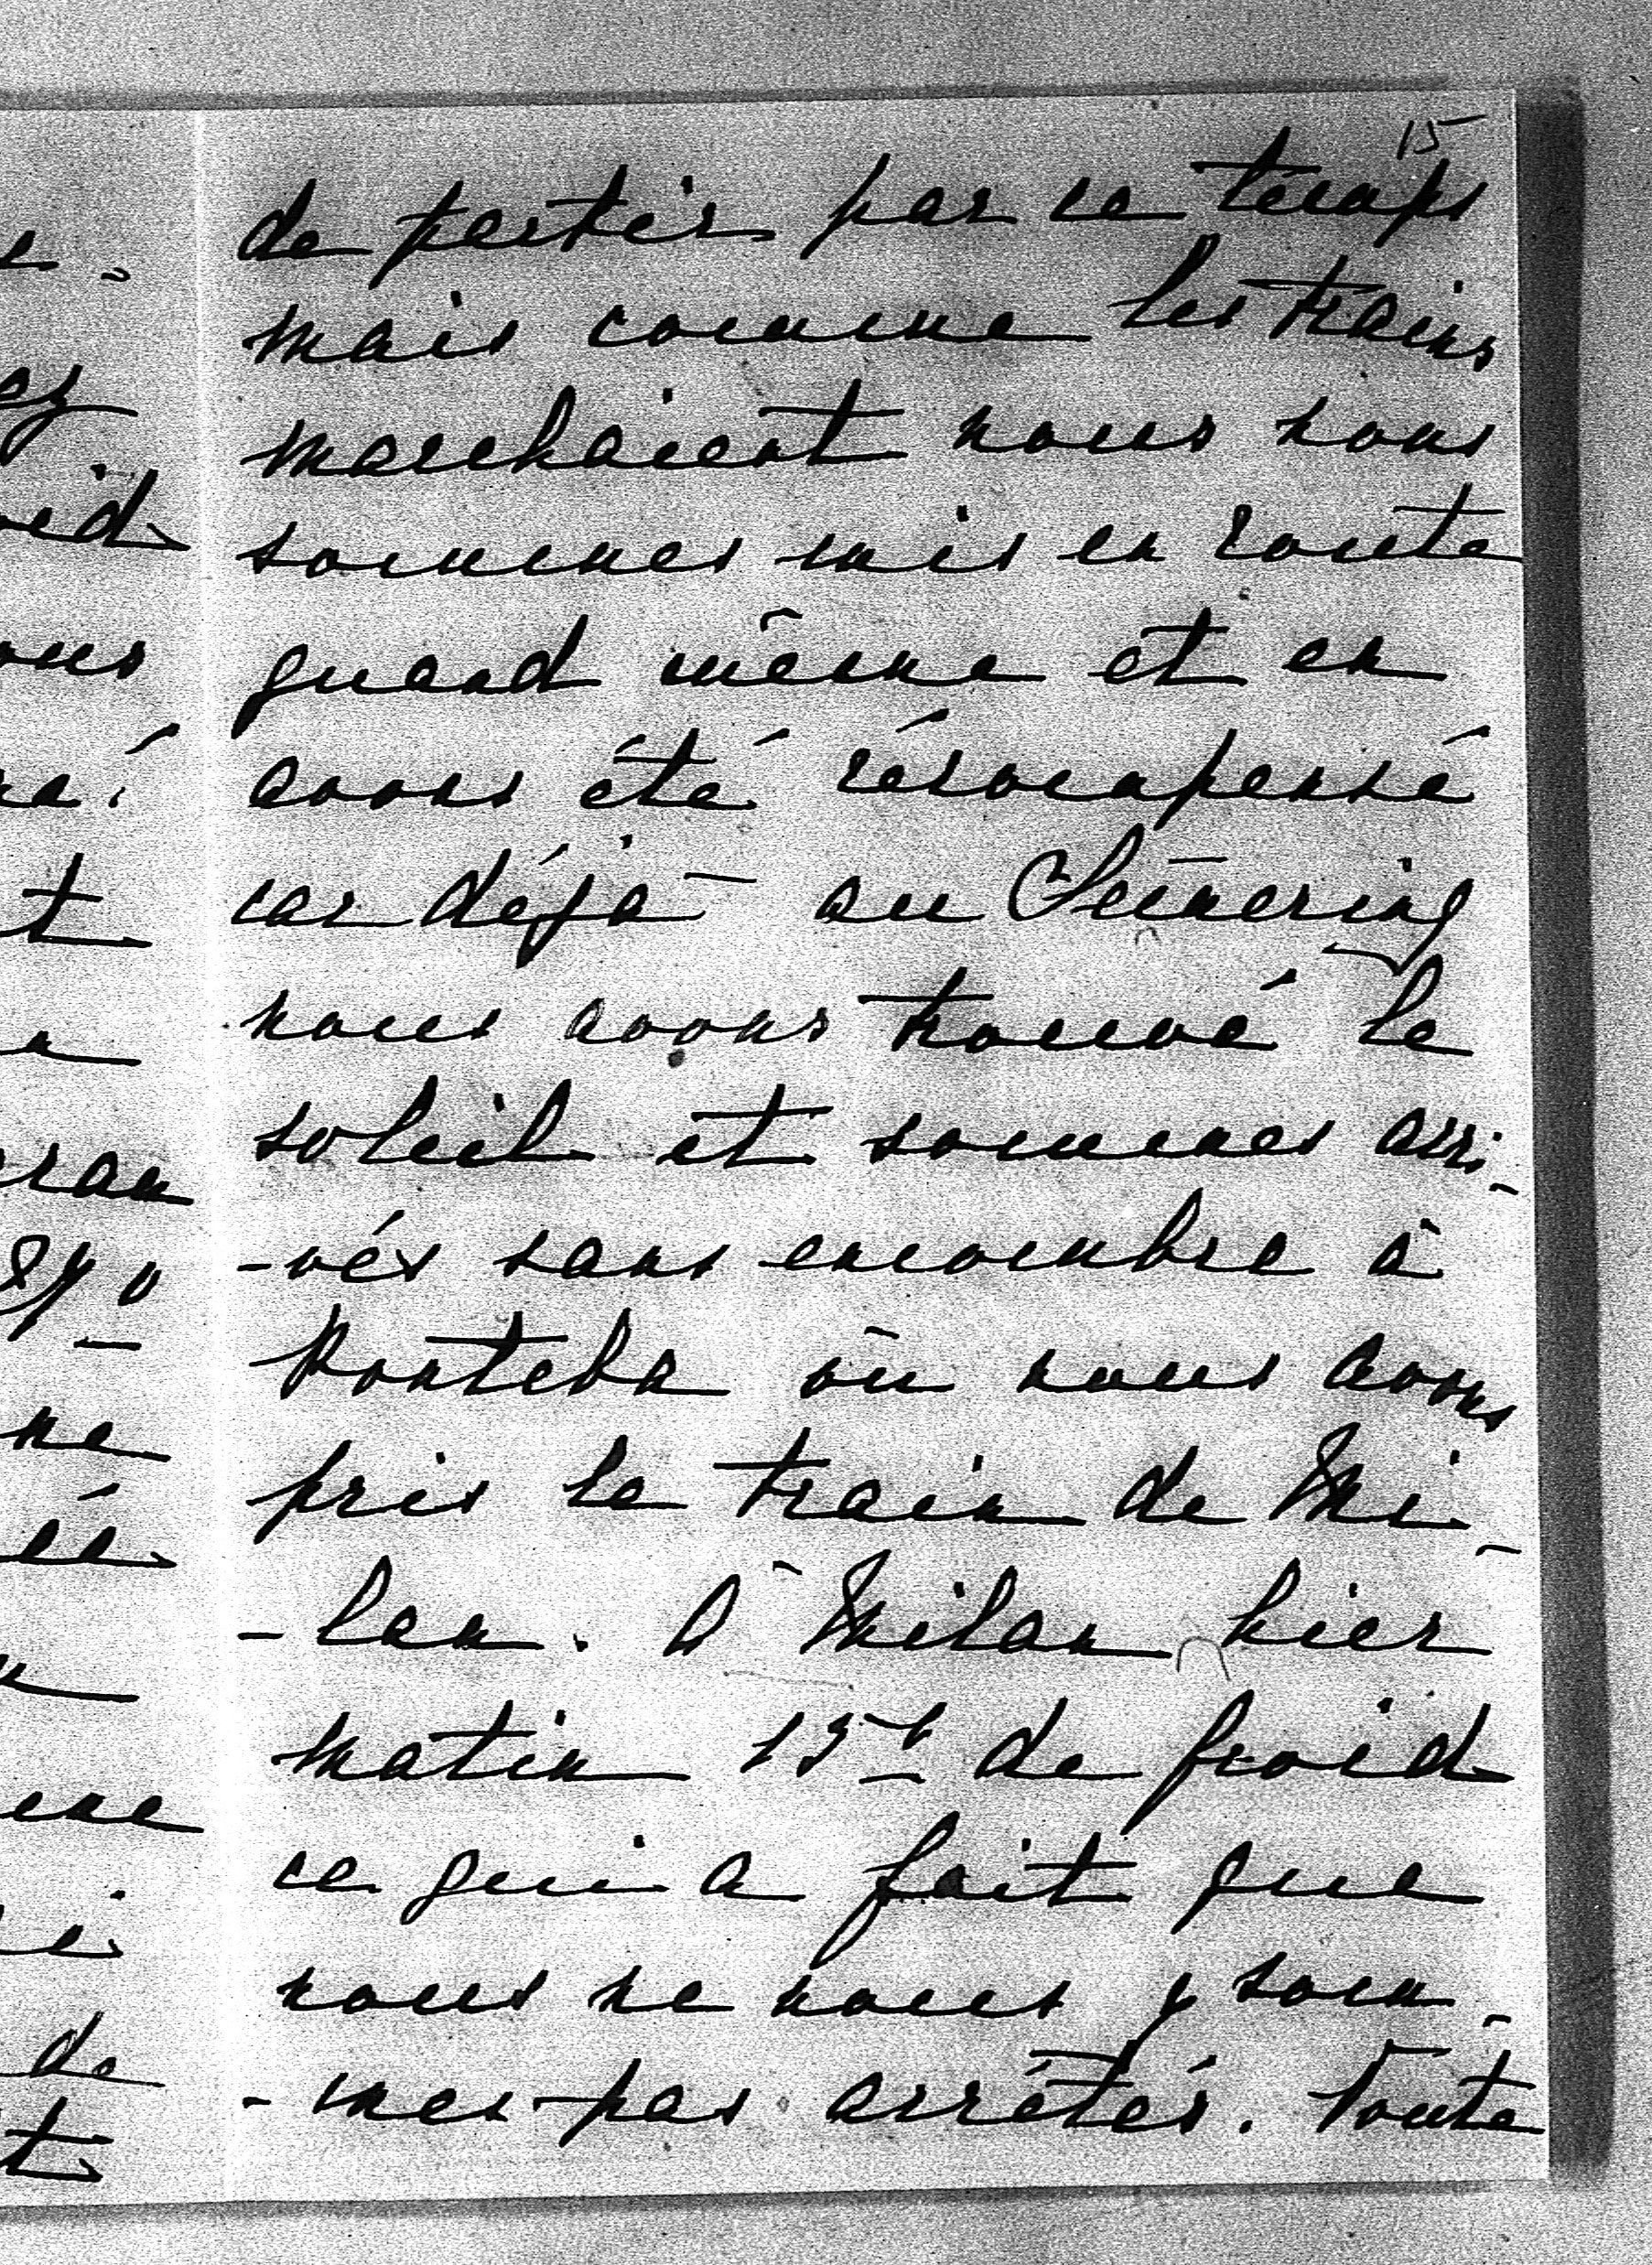 15
de partir par ce temps
mais comme les trains
marchaient nous nous
sommes mis en route
quand même et en
avons été récompensé
car déjà au Semering
nous avons trouvé le
soleil et sommes arri-
-vés sans encombre à
Ponteba où nous avons
pris le train de Mi-
-lan. A Milan hier
matin de froid
ce qui a fait que
nous ne nous y som-
-mes pas arrêtés. Toute